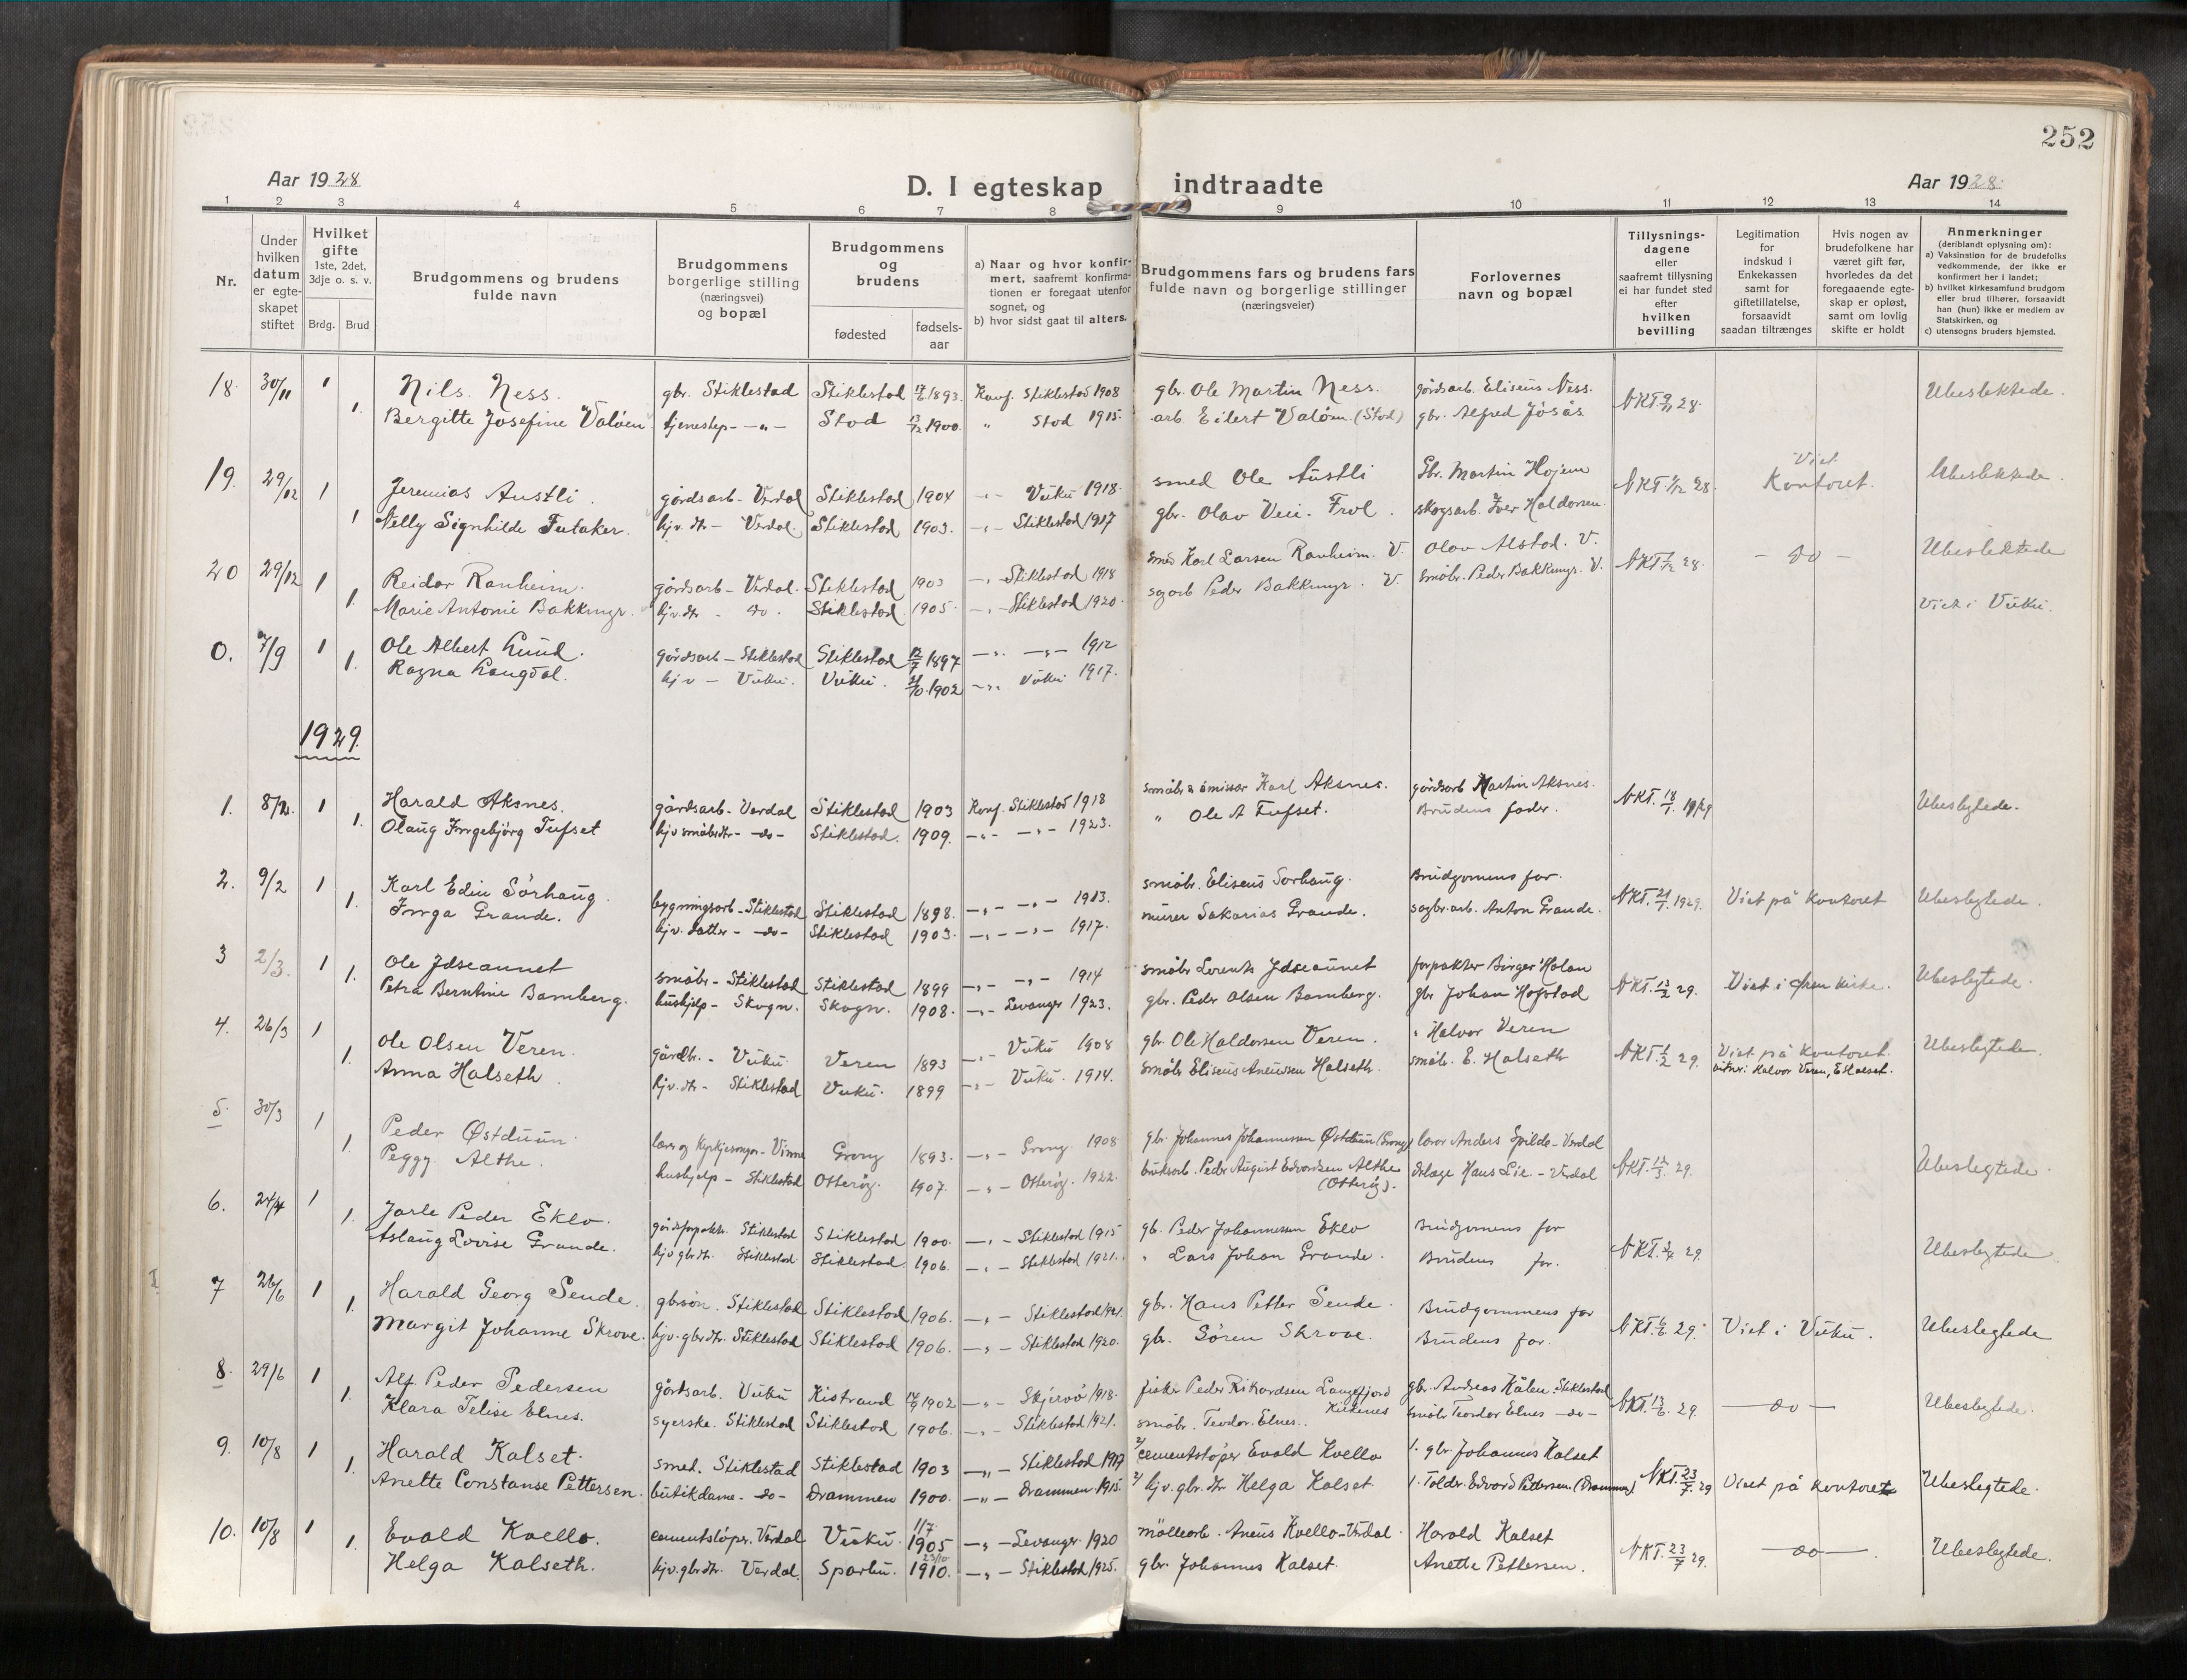 252
Aar 1928
D. I egteskap indtraadte
Aar 1928.
1 2 3 4 5 6 7 8 9 10 11 12 13 14
Nr.
Under hvilken datum er egteskapet stiftet
Hvilket gifte 1ste, 2det, 3dje o. s. v.
Brdg. Brud
Brudgommens og brudens fulde navn
Brudgommens borgerlige stilling (næringsvei) og bopæl
Brudgommens og brudens
fødested
fødsels-aar
a) Naar og hvor konfirmert, saafremt konfirmationen er foregaat utenfor sognet, og
b) hvor sidst gaat til alters.
Brudgommens fars og brudens fars fulde navn og borgerlige stillinger (næringsveier)
Forlovernes navn og bopæl
Tillysningsdagene eller saafremt tillysning ei har fundet sted efter hvilken bevilling
Legitimation for indskud i Enkekassen samt for giftetillatelse, forsaavidt saadan tiltrænges
Hvis nogen av brudefolkene har været gift før, hvorledes da det foregaaende egteskap er opløst, samt om lovlig skifte er holdt
Anmerkninger (deriblandt oplysning om):
a) Vaksination for de brudefolks vedkommende, der ikke er konfirmert her i landet;
b) hvilket kirkesamfund brudgom eller brud tilhører, forsaavidt han (hun) ikke er medlem av Statskirken, og
c) utensogns bruders hjemsted.
18. 30/11 1 Nils Ness. gbr. Stiklestad Stiklestad 17/2 1893. Konf. Stiklestad 1908 gbr. Ole Martin Ness. gårdsarb. Eliseus Ness. NKT 9/11 28. Ubeslektede.
1. Bergitte Josefine Valöen tjenestep. - " - Stod 13/12 1900. " Stod 1915. arb. Eilert Valöen (Stod) gbr. Alfred Jösås
19. 29/12 1 Jeremias Austli. gårdsarb - Verdal Stiklestad 1904 - " - Vuku 1918. smed Ole Austli Gbr. Martin Hojem NKT. 7/12 28. Viet Kontoret. Ubeslektede.
1 Nelly Signhilde Futaker. hjv. dtr - Verdal. Stiklestad 1903. - " - Stiklestad 1917 gbr. Olav Veie. Frol. skogsarb. Iver Haldorsen
20 29/12 1 Reidar Ranheim. gårdsarb - Verdal. Stiklestad 1903 - " - Stiklestad 1918 smed Karl Larsen Ranheim. V. Olav Alstad. V. NKT 7/12 28. - do - Ubeslektede
1. Marie Antonie Bakkmyr. hjv. dtr - do. Stiklestad 1905. - " - Stiklestad 1920. sagarb Peder Bakkmyr. V. småbr. Peder Bakkmyr. V. Viet i Vuku.
0. 7/9 1 Ole Albert Lund. gårdsarb - Stiklestad Stiklestad 12/7 1897 - " - - " - 1912
1. Ragna Langdal. hjv - Vuku. Vuku. 1902 - " - Vuku 1917.
1929.
1. 8/2. 1 Harald Aksnes. gårdsarb - Verdal Stiklestad 1903 Konf. Stiklestad 1918 småbr & emissar Karl Aksnes. gårdsarb Martin Aksnes. NKT. 18/1. 1929 Ubeslegtede.
1. Olaug Ingebjörg Tufset hjv småbrdtr - do - Stiklestad. 1909. - " - - " - 1923. " Ole A Tufset. Brudens fader.
2. 9/2 1 Karl Edin Sörhaug. bygningsarb - Stiklestad Stiklestad 1898. - " - - " - 1913. småbr. Eliseus Sorhaug. Brudgomens far. NKT. 21/1. 1929. Viet på kontoret Ubeslegtede.
1. Inga Grande. hjv. datter - do - Stiklestad 1903. - " - - " - 1917. murer Sakarias Grande. sagbr.arb. Anton Grande.
3 2/3. 1 Ole Ydseaunet småbr - Stiklestad Stiklestad 1899 - " - - " - 1914 småbr Lorents Ydseaunet forpakter Birger Holan NKT. 13/2 29. Viet i kirke. Ubeslegtede.
1. Petra Berntine Bamberg. hushjelp - Skogn. Skogn. 1908. - " - Levanger 1923. gbr. Peder Olsen Bamberg. gbr Johan Hogstad
4. 26/3 1 Ole Olsen Veren. gårdbr. - Vuku Veren 1893 - " - Vuku 1908 gbr. Ole Haldorsen Veren. " Halvor Veren NKT. 29. Viet på kontoret.
1. Anna Halseth hjv. dtr - Stiklestad Vuku. 1899 - " - Vuku. 1914. småbr Eliseus Aneussen Halseth. småbr. E. Halseth vitner: Halvor Veren, E Halset. Ubeslegtede.
5. 30/3 1 Peder Østduun. lærer og kyrkjesongar - Vinne Grong 1893. - " - Grong 1908. gbr. Johannes Johannessen Østduun (Grong) lærer Anders Spilde - Verdal NKT. 12/3. 29. Ubeslegtede.
1. Peggy Althe. hushjelp - Stiklestad Otterøy. 1907. - " - Otterøy. 1922. bruksarb. Peder August Edvardsen Althe (Otterøy). Hans Lie. - Verdal
6. 24/4 1 Jarle Peder Eklo. gårdsforpakt. Stiklestad Stiklestad 1900. - " - Stiklestad 1915 gb. Peder Johannessen Eklo Brudgomens far NKT. 3/4 29. Ubeslegtede
1. Aslaug Lovise Grande. hjv gbrdtr. Stiklestad Stiklestad. 1906. - " - Stiklestad 1921. " Lars Johan Grande. Brudens far.
7 26/6 1 Harald Georg Sende gbrsön. Stiklestad Stiklestad 1906. - " - Stiklestad 1921. gbr. Hans Petter Sende. Brudgommens far NKT. 6/6. 29. Viet i Vuku. Ubeslegtede
1. Margit Johanne Skrove. hjv. gbrdtr. Stiklestad Stiklestad 1906. - " - Stiklestad 1920. gbr. Sören Skrove. Brudens far.
8. 29/6 1 Alf Peder Pedersen gårdsarb. Vuku Kistrand 1902 - " - Skjervö 1918. fisker Peder Rikardsen Langefjord Kirkenes gbr. Andreas Kålen. Stiklestad NKT. 13/6. 29. - do - Ubeslegtede.
1. Klara Telise Elnes. syerske. Stiklestad Stiklestad 1906. - " - Stiklestad 1921. småbr. Teodor Elnes. småbr Teodor Elnes - do -
9. 10/8 1 Harald Kalset. smed. Stiklestad Stiklestad 1903 - " - Stiklestad 1917 2/ cementstöper Evald Kvello 1. gbr. Johannes Kalset NKT. 23/7. 29 Viet på kontoret Ubeslegtede.
1. Anette Constanse Pettersen. butikdame - do - Drammen 1900. - " - Drammen 1915. 2/ hjv. gbr. dtr Helga Kalset 1. Tolder. Edvard Pettersen (Drammen)
10. 10/8 1 Evald Kvello. cementstöper. Verdal Vuku. 11/7 1905 - " - Levanger 1920 mölleарb. Aneus Kvello - Verdal. Harald Kalset NKT. 23/7 29. - do - Ubeslegtede.
1. Helga Kalseth. hjv. gbrdtr. Verdal. Sparbu. 1910. - " - Stiklestad 1925. gbr. Johannes Kalset. Anette Pettersen.